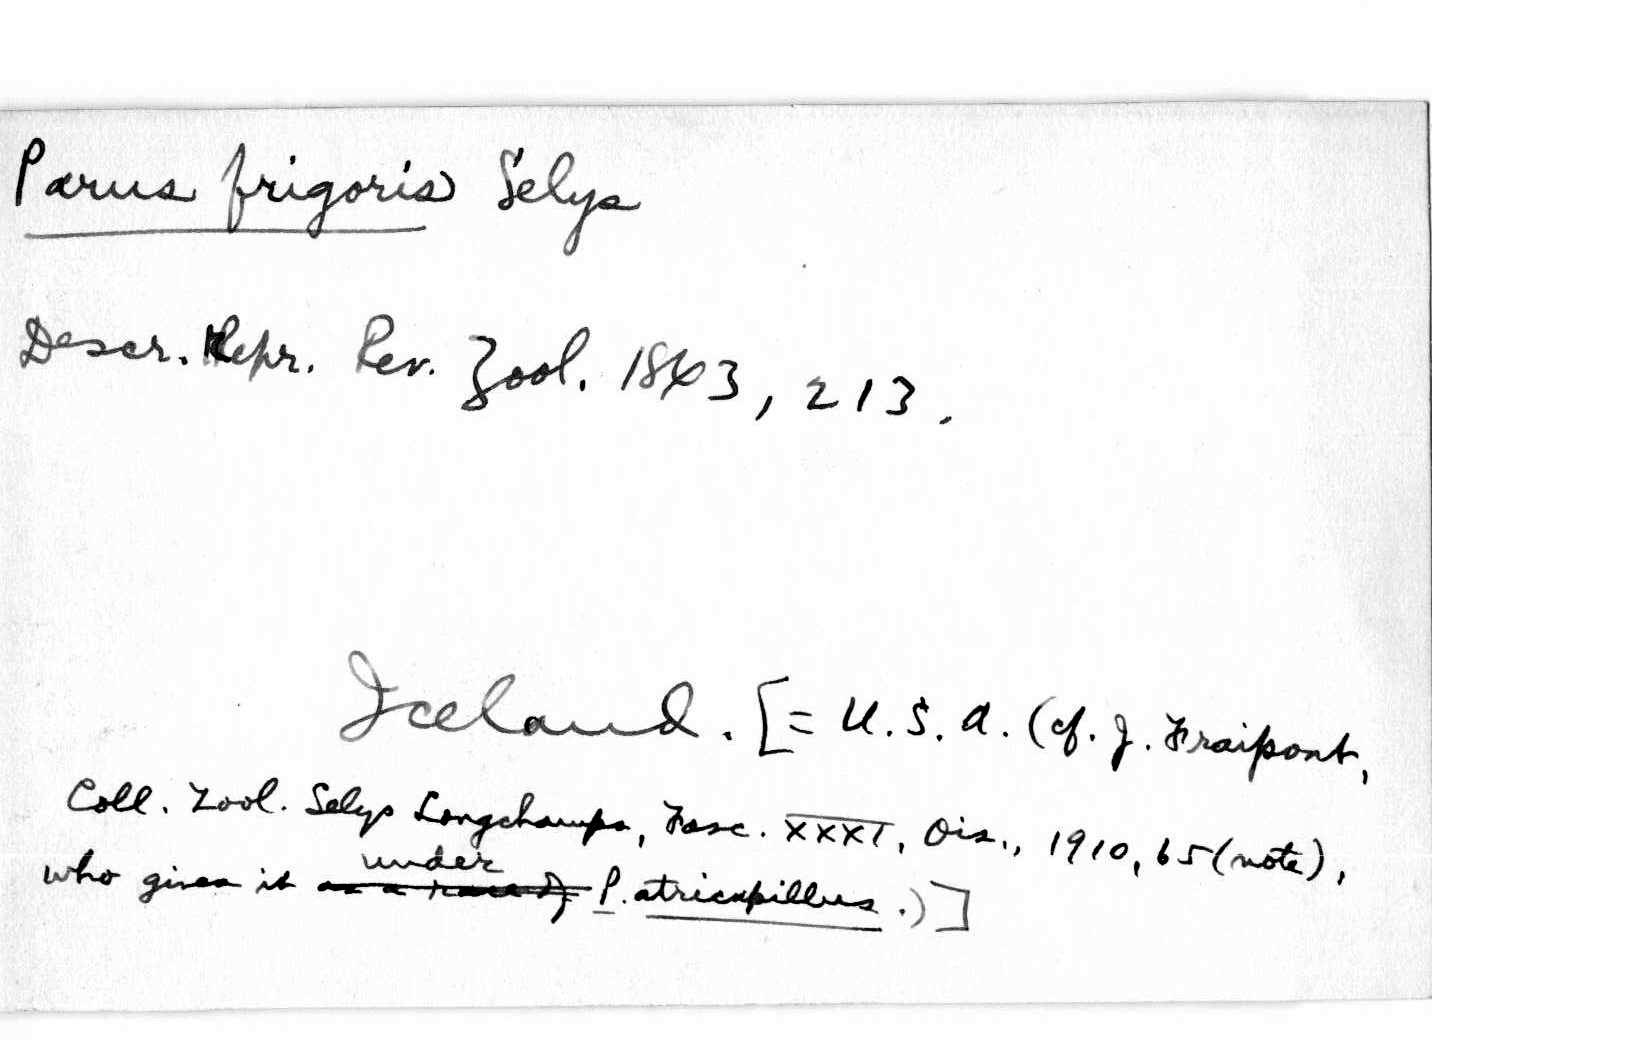 Parus frigoris Selys
Descr. Repr. Rev. Zool. 1843, 213.
Iceland. [= U.S.A. (cf. J. Fraipont,
Coll. Zool. Selys Longchamps, Fasc. XXXI, Ois., 1910, 65 (note),
who gives it as a race of under P. atricapillus.)]